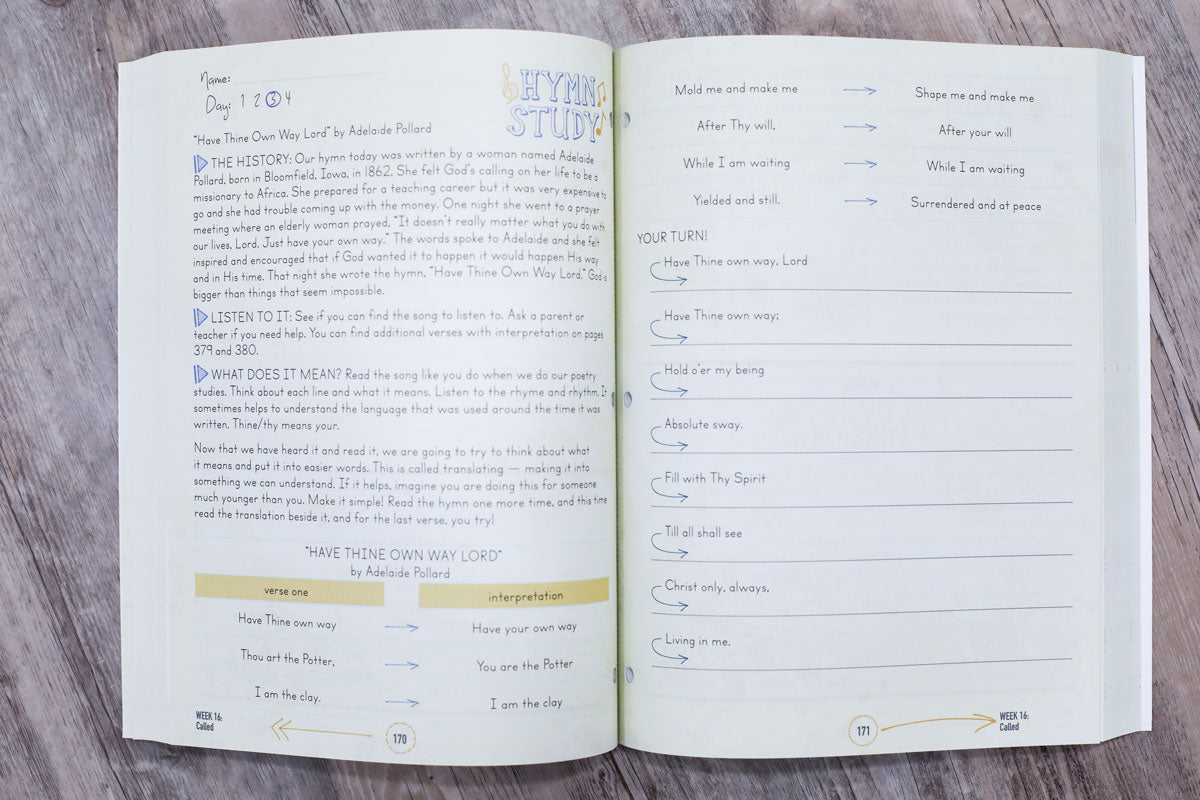 Name:
Day: 1 2 3 4
HYMN
STUDY
"Have Thine Own Way Lord" by Adelaide Pollard
THE HISTORY: Our hymn today was written by a woman named Adelaide
Pollard, born in Bloomfield, Iowa, in 1862. She felt God's calling on her life to be a
missionary to Africa. She prepared for a teaching career but it was very expensive to
go and she had trouble coming up with the money. One night she went to a prayer
meeting where an elderly woman prayed, "It doesn't really matter what you do with
our lives, Lord. Just have your own way." The words spoke to Adelaide and she felt
inspired and encouraged that if God wanted it to happen it would happen His way
and in His time. That night she wrote the hymn, "Have Thine Own Way Lord." God is
bigger than things that seem impossible.
LISTEN TO IT: See if you can find the song to listen to. Ask a parent or
teacher if you need help. You can find additional verses with interpretation on pages
379 and 380.
WHAT DOES IT MEAN? Read the song like you do when we do our poetry
studies. Think about each line and what it means. Listen to the rhyme and rhythm. It
sometimes helps to understand the language that was used around the time it was
written. Thine/thy means your.
Now that we have heard it and read it, we are going to try to think about what
it means and put it into easier words. This is called translating — making it into
something we can understand. If it helps, imagine you are doing this for someone
much younger than you. Make it simple! Read the hymn one more time, and this time
read the translation beside it, and for the last verse, you try!
"HAVE THINE OWN WAY LORD"
by Adelaide Pollard
verse one interpretation
Have Thine own way Have your own way
Thou art the Potter, You are the Potter
I am the clay. I am the clay
WEEK 16:
Called
170
Mold me and make me Shape me and make me
After Thy will, After your will
While I am waiting While I am waiting
Yielded and still. Surrendered and at peace
YOUR TURN!
Have Thine own way, Lord
Have Thine own way;
Hold o'er my being
Absolute sway.
Fill with Thy Spirit
Till all shall see
Christ only, always,
Living in me.
171
WEEK 16:
Called